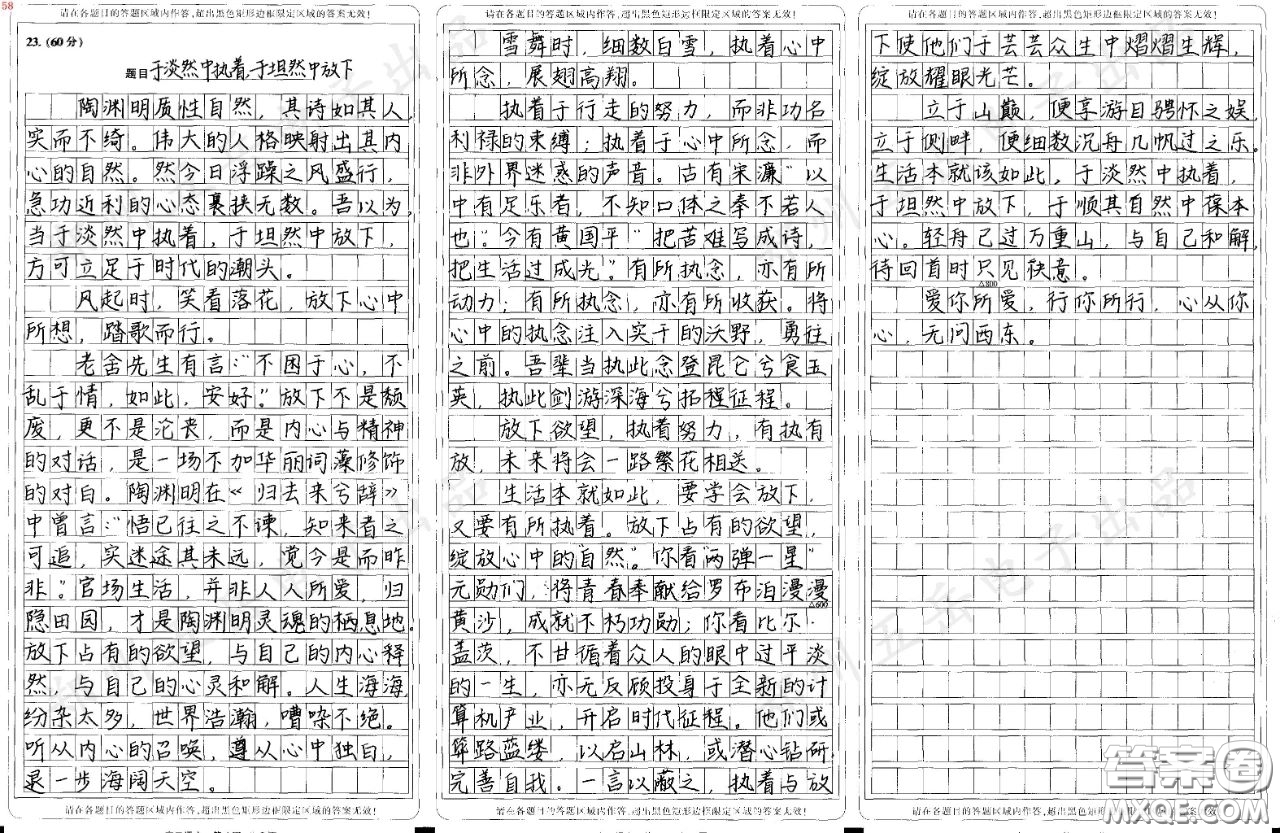 58
请在各题目的答题区域内作答,超出黑色矩形边框限定区域的答案无效!
23. (60分)
题目于淡然中执着,于坦然中放下
陶渊明质性自然，其诗如其人，
实而不绮。伟大的人格映射出其内
心的自然。然今日浮躁之风盛行，
急功近利的心态裹挟无数。吾以为，
当于淡然中执着，于坦然中放下，
方可立足于时代的潮头。
风起时，笑看落花，放下心中
所想，踏歌而行。
老舍先生有言：“不困于心，不
乱于情，如此，安好。”放下不是颓
废，更不是沦丧，而是内心与精神
的对话，是一场不加华丽词藻修饰
的对白。陶渊明在《归去来兮辞》
中曾言：“悟已往之不谏，知来者之
可追，实迷途其未远，觉今是而昨
非。”官场生活，并非人人所爱，归
隐田园，才是陶渊明灵魂的栖息地。
放下占有的欲望，与自己的内心释
然，与自己的心灵和解。人生海海，
纷杂太多，世界浩瀚，嘈杂不绝。
听从内心的召唤，遵从心中独白，
退一步海阔天空。
请在各题目的答题区域内作答,超出黑色矩形边框限定区域的答案无效!
请在各题目的答题区域内作答,超出黑色矩形边框限定区域的答案无效!
雪舞时，细数白雪，执着心中
所念，展翅高翔。
执着于行走的努力，而非功名
利禄的束缚；执着于心中所念，而
非外界迷惑的声音。古有宋濂“以
中有足乐者，不知口体之奉不若人
也”。今有黄国平“把苦难写成诗，
把生活过成光”。有所执念，亦有所
动力；有所执念，亦有所收获。将
心中的执念注入实干的沃野，勇往
之前。吾辈当执此念登昆仑兮食玉
英，执此剑游深海兮拓程征程。
放下欲望，执着努力，有执有
放，未来将会一路繁花相送。
生活本就如此，要学会放下，
又要有所执着。放下占有的欲望，
绽放心中的“自然”。你看“两弹一星”
元勋们，将青春奉献给罗布泊漫漫
△600
黄沙，成就不朽功勋；你看比尔·
盖茨，不甘循着众人的眼中过平淡
的一生，亦无反顾投身于全新的计
算机产业，开启时代征程。他们或
筚路蓝缕，以启山林，或潜心钻研，
完善自我。一言以蔽之，执着与放
请在各题目的答题区域内作答,超出黑色矩形边框限定区域的答案无效!
请在各题目的答题区域内作答,超出黑色矩形边框限定区域的答案无效!
下使他们于芸芸众生中熠熠生辉，
绽放耀眼光芒。
立于山巅，便享游目骋怀之娱，
立于侧畔，便细数沉舟几帆过之乐。
生活本就该如此，于淡然中执着，
于坦然中放下，于顺其自然中葆本
心。轻舟已过万重山，与自己和解，
待回首时只见秋意。
△800
爱你所爱，行你所行，心从你
心，无问西东。
请在各题目的答题区域内作答,超出黑色矩形边框限定区域的答案无效!
答案圈
MXQE.COM